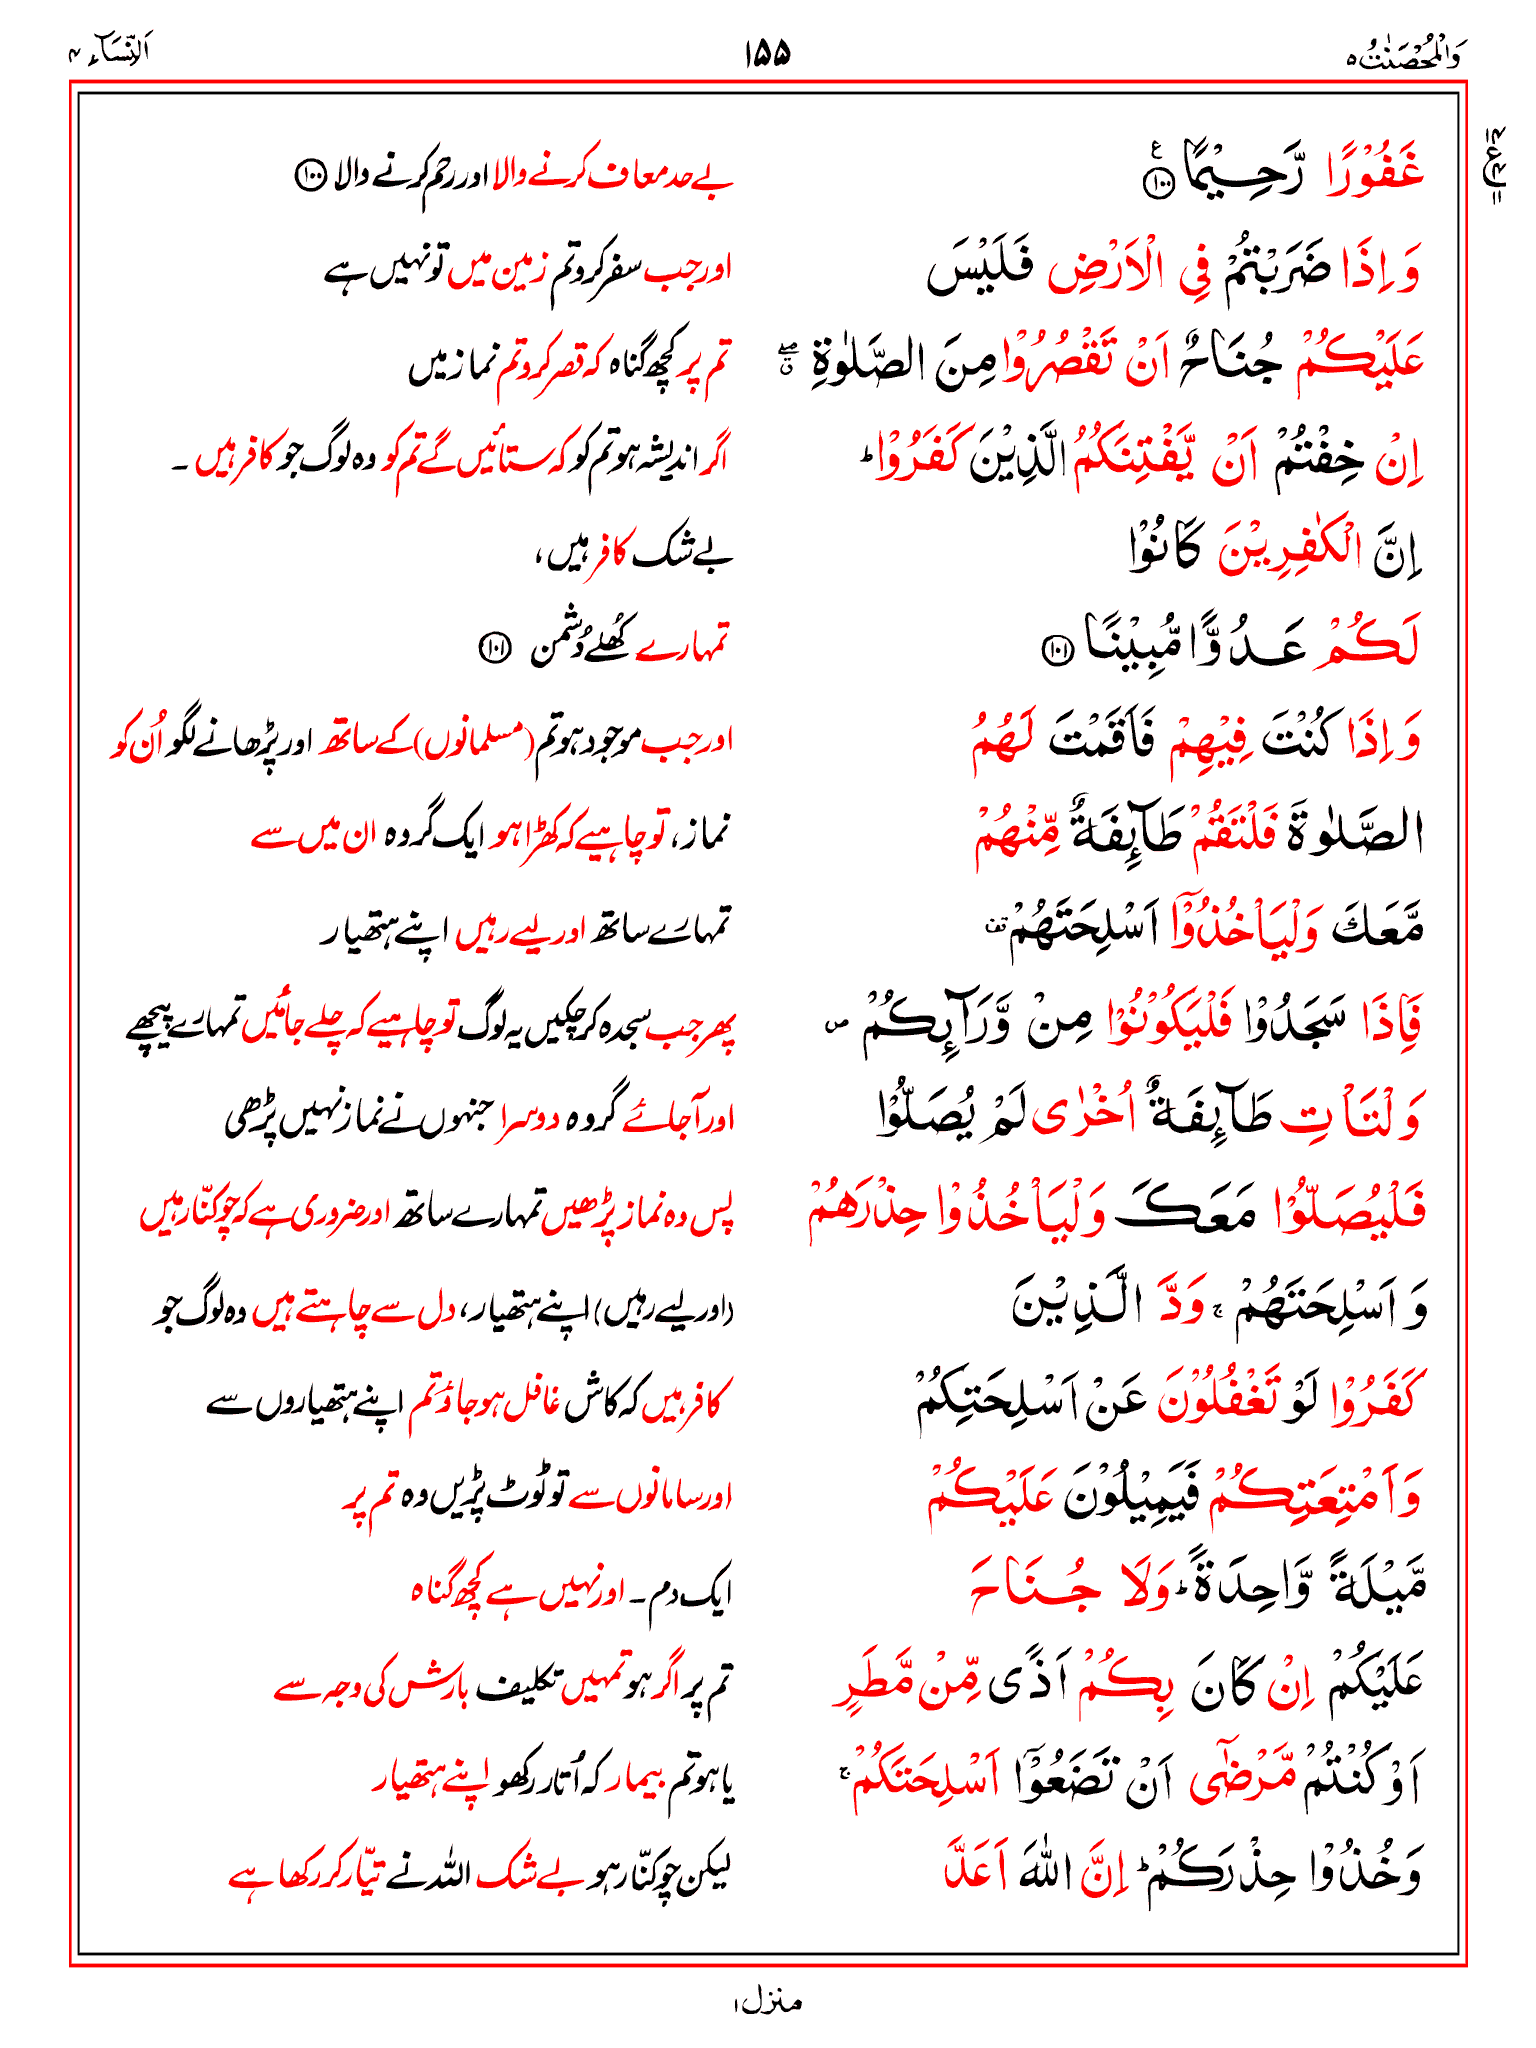 وَالْمُحْصَنٰتُ ۵ ۱۵۵ اَلنِّسَآء ۴
غَفُوْرًا رَّحِيْمًا ۝۱۰۰ ع بے حد معاف کرنے والا اور رحم کرنے والا ۝۱۰۰
وَاِذَا ضَرَبْتُمْ فِي الْاَرْضِ فَلَيْسَ اور جب سفر کرو تم زمین میں تو نہیں ہے
عَلَيْكُمْ جُنَاحٌ اَنْ تَقْصُرُوْا مِنَ الصَّلٰوةِ ۖق تم پر کچھ گناہ کہ قصر کرو تم نماز میں
اِنْ خِفْتُمْ اَنْ يَّفْتِنَكُمُ الَّذِيْنَ كَفَرُوْا ؕ اگر اندیشہ ہو تم کو کہ ستائیں گے تم کو وہ لوگ جو کافر ہیں ۔
اِنَّ الْكٰفِرِيْنَ كَانُوْا بے شک کافر ہیں،
لَكُمْ عَدُوًّا مُّبِيْنًا ۝۱۰۱ تمہارے کُھلے دُشمن ۝۱۰۱
وَاِذَا كُنْتَ فِيْهِمْ فَاَقَمْتَ لَهُمُ اور جب موجود ہو تم (مسلمانوں) کے ساتھ اور پڑھانے لگو اُن کو
الصَّلٰوةَ فَلْتَقُمْ طَآئِفَةٌ مِّنْهُمْ نماز، تو چاہیے کہ کھڑا ہو ایک گروہ ان میں سے
مَّعَكَ وَلْيَاْخُذُوْۤا اَسْلِحَتَهُمْ قف تمہارے ساتھ اور لیے رہیں اپنے ہتھیار
فَاِذَا سَجَدُوْا فَلْيَكُوْنُوْا مِنْ وَّرَآئِكُمْ ص پھر جب سجدہ کر چکیں یہ لوگ تو چاہیے کہ چلے جائیں تمہارے پیچھے
وَلْتَاْتِ طَآئِفَةٌ اُخْرٰى لَمْ يُصَلُّوْا اور آجائے گروہ دوسرا جنہوں نے نماز نہیں پڑھی
فَلْيُصَلُّوْا مَعَكَ وَلْيَاْخُذُوْا حِذْرَهُمْ پس وہ نماز پڑھیں تمہارے ساتھ اور ضروری ہے کہ چوکنّا رہیں
وَ اَسْلِحَتَهُمْ ۚ وَدَّ الَّذِيْنَ (اور لیے رہیں) اپنے ہتھیار، دل سے چاہتے ہیں وہ لوگ جو
كَفَرُوْا لَوْ تَغْفُلُوْنَ عَنْ اَسْلِحَتِكُمْ کافر ہیں کہ کاش غافل ہو جاؤ تم اپنے ہتھیاروں سے
وَاَمْتِعَتِكُمْ فَيَمِيْلُوْنَ عَلَيْكُمْ اور سامانوں سے تو ٹوٹ پڑیں وہ تم پر
مَّيْلَةً وَّاحِدَةً ؕ وَلَا جُنَاحَ ایک دم ۔ اور نہیں ہے کچھ گناہ
عَلَيْكُمْ اِنْ كَانَ بِكُمْ اَذًى مِّنْ مَّطَرٍ تم پر اگر ہو تمہیں تکلیف بارش کی وجہ سے
اَوْ كُنْتُمْ مَّرْضٰۤى اَنْ تَضَعُوْۤا اَسْلِحَتَكُمْ ۚ یا ہو تم بیمار کہ اُتار رکھو اپنے ہتھیار
وَخُذُوْا حِذْرَكُمْ ؕ اِنَّ اللّٰهَ اَعَدَّ لیکن چوکنّا رہو بے شک اللہ نے تیّار کر رکھا ہے
منزل ۱